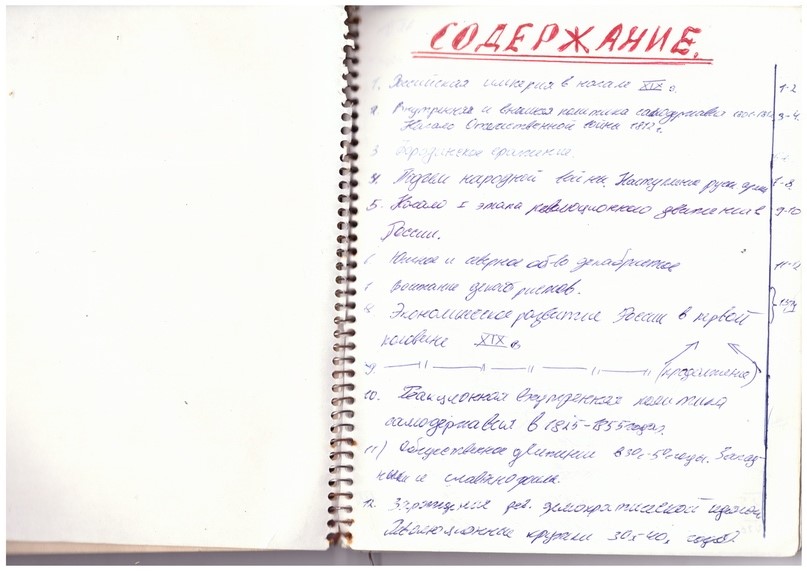 СОДЕРЖАНИЕ.
1. Российская империя в начале XIX в. 1-2
2. Внутренняя и внешняя политика самодержавия 3-4
Начало Отечественной войны 1812 г.
3 Бородинское сражение.
4. Подъем народной войны. Наступление русс. армии 7-8
5. Начало I этапа революционного движения в 9-10
России.
Южное и северное об-во декабристов 11-12
Восстание декабристов.
8. Экономическое развитие России в первой
половине XIX в.
9. — " — " — " — " — " (продолжение)
10. Реакционная внутренняя политика
самодержавия в 1825-1855 годах.
11) Общественное движение в 30х-50 годы. Запад-
ники и славянофилы.
12. Зарождение рев. демократической идеологии
Революционные кружки 30х-40х годов.